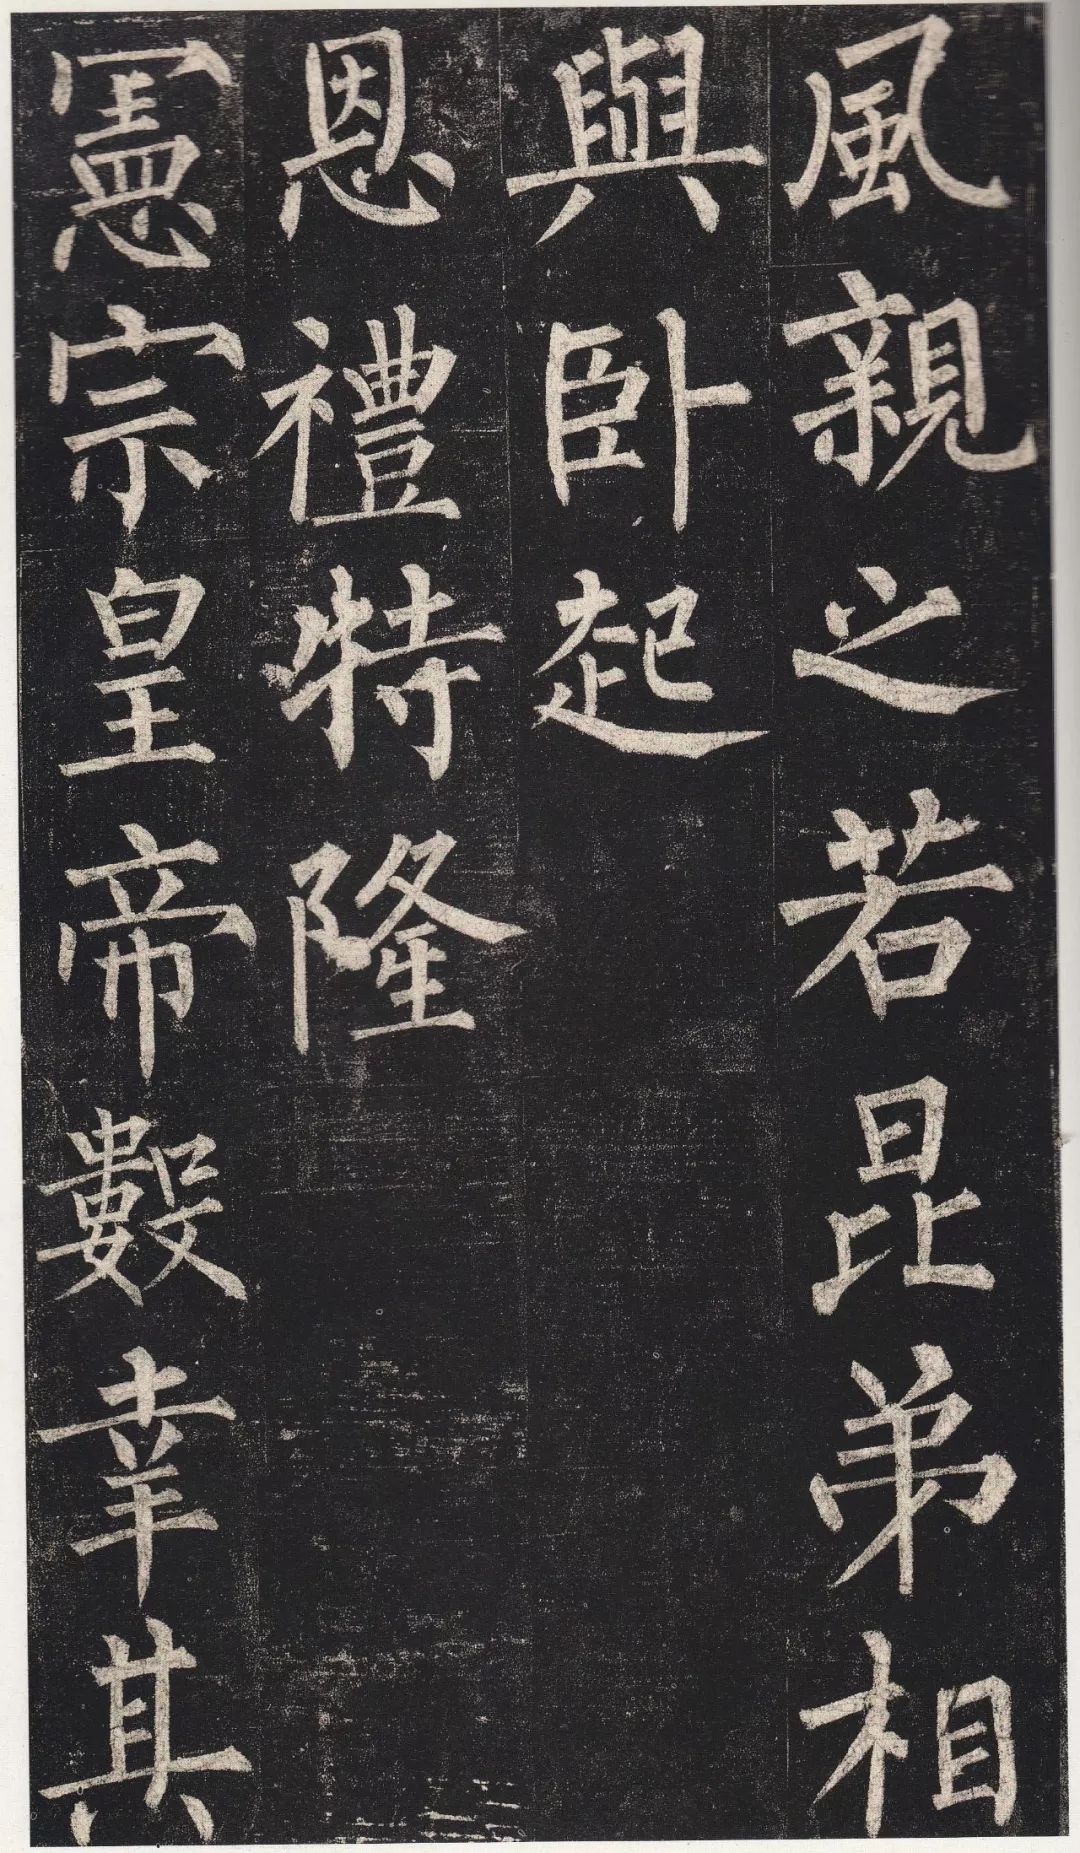 風親之若昆弟相
與臥起
恩禮特隆
憲宗皇帝數幸其